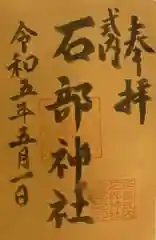 奉拝
式内
石部神社
令和五年五月一日